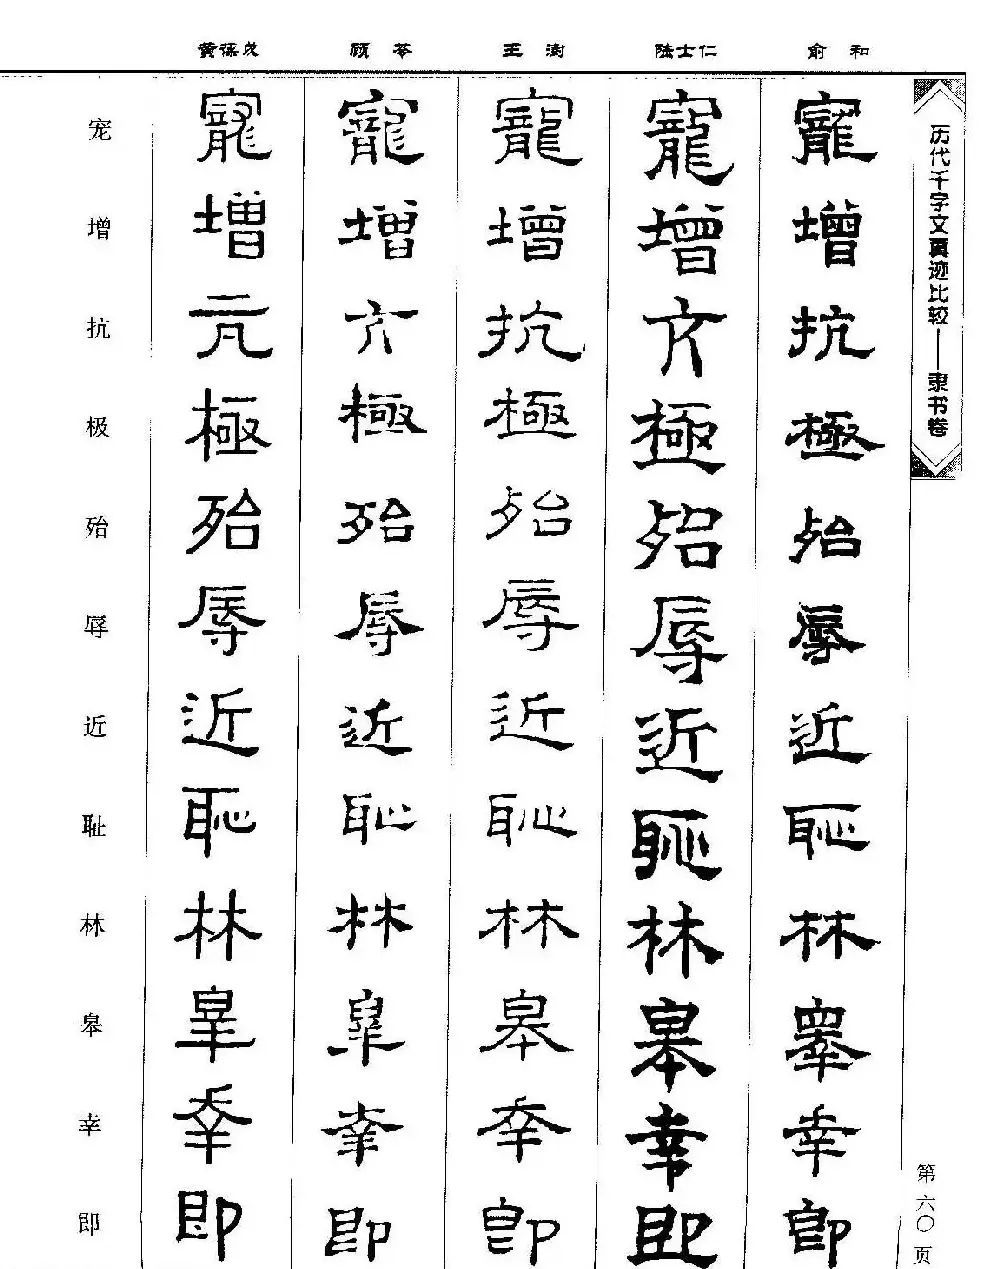 历代千字文真迹比较——隶书卷
第六〇页
俞和
寵增抗極殆辱近恥林皋幸即
陆士仁
寵增亢極殆辱近恥林皋幸即
王澍
寵增抗極殆辱近恥林皋幸即
顾苓
寵增亢極殆辱近恥林皋幸即
黄葆戉
寵增亢極殆辱近恥林皋幸即
宠增抗极殆辱近耻林皋幸即